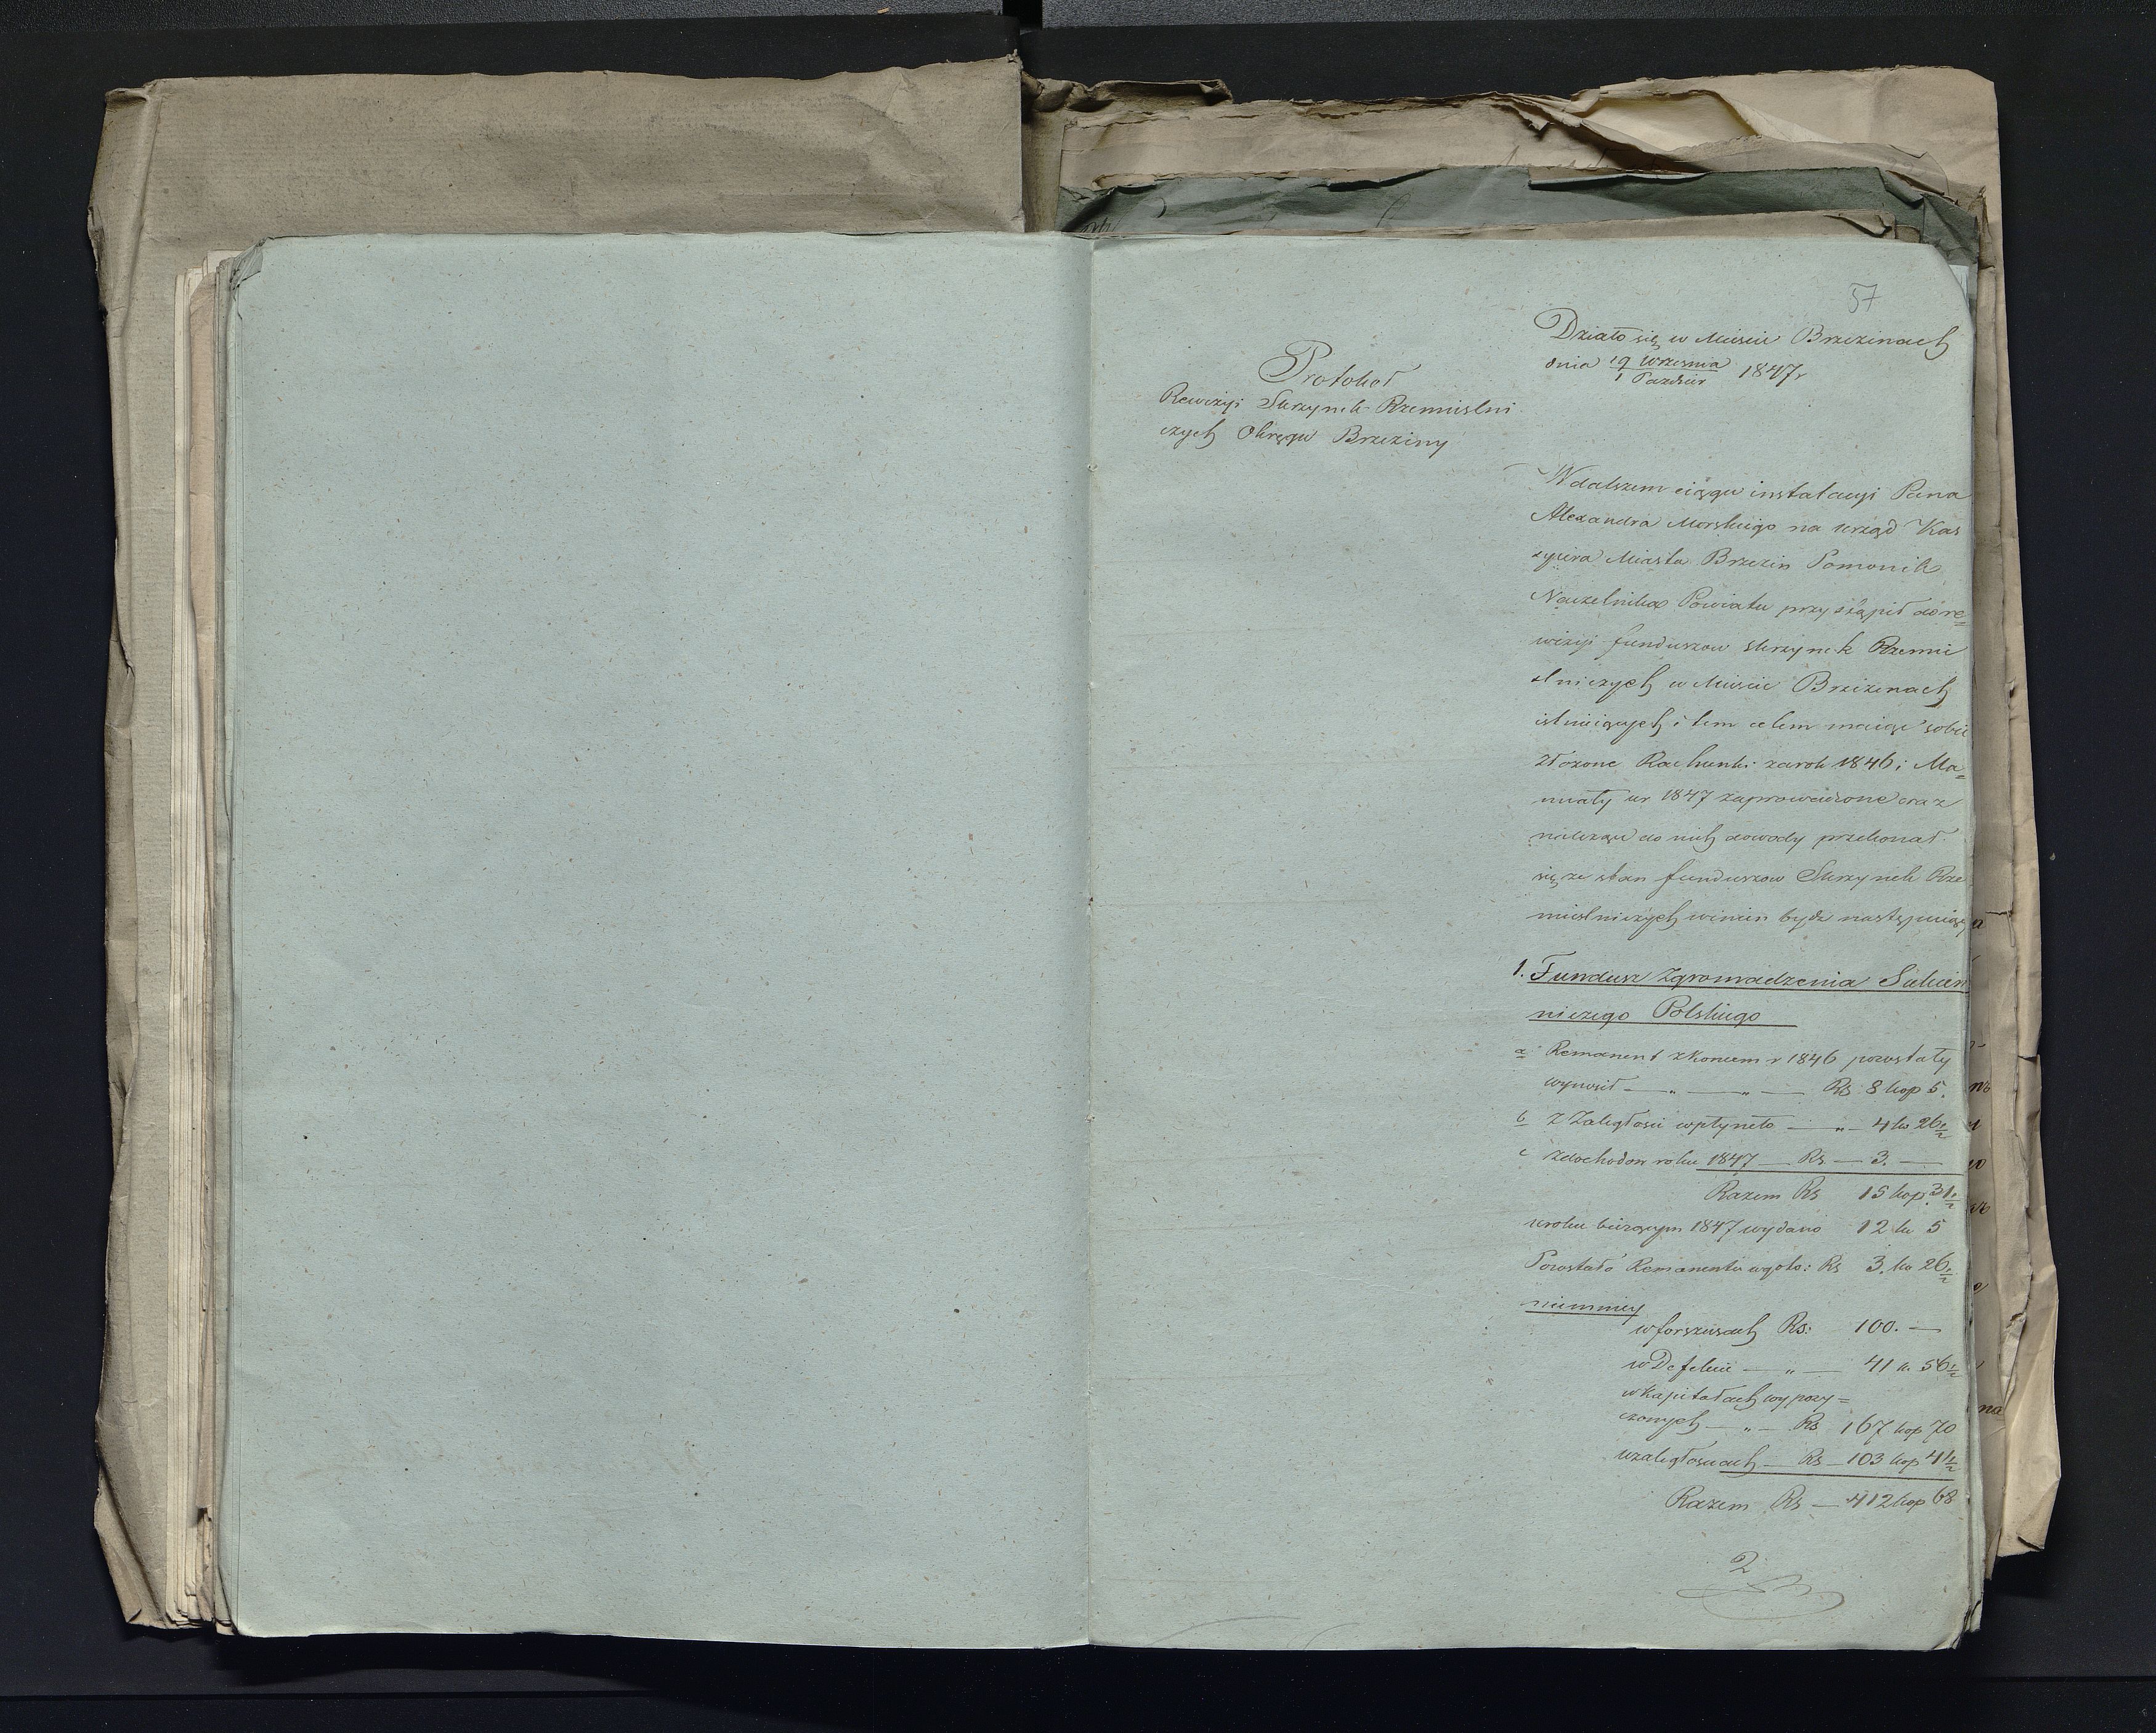 57
Działo się w Mieście Brzezinach
dnia 19 Września / 1 Paździer 1847 r
Protokoł
Rewizyi Skrzynek Rzemieslni
czych Okręgu Brzeziny
W dalszem ciągu instalacyi Pana
Alexandra Morskiego na urząd Kas
syiera Miasta Brzezin Pomonik
Naczelnika Powiatu przystąpił do re=
wizyi funduszow skrzynek Rzemie
slniczych w Mieście Brzezinach
istnieiących i tem celem maiąc sobie
złożone Rachunki za rok 1846 i Ma=
nuały w r 1847 zaprowadzone oraz
należące do nich dowody przekonał
się ze stan funduszow Skrzynek Rze
mieslniczych winien bydz następuiący
1. Fundusz Zgromadzenia Sukien
niczego Polskiego
a Remanent z koncem r 1846 pozostały
wynosił — „ — „ — Rs 8 kop 5.
b Z Zaległosci wpłynęło — „ — 4 ko 26 1/2
c z dochodow roku 1847 — Rs — 3. —
Razem Rs 15 kop. 31 1/2
w roku bieżącym 1847 wydano 12 ko 5
Pozostało Remanentu w goto: Rs 3. ko 26 1/2
niemniey
w forszusach Rs: 100. —
w Defekcie — „ — 41 k. 56 1/2
w kapitałach wypozy=
czonych — „ — Rs 167 kop 70
w zaległosciach — Rs — 103 kop 41 1/2
Razem Rs — 412 kop 68
2